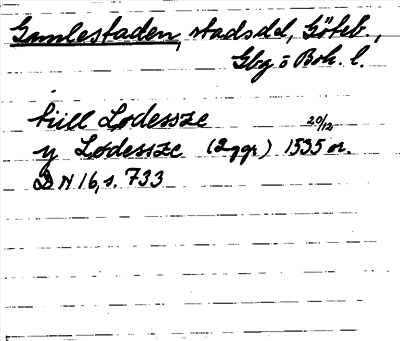 Gamlestaden, stadsdel, Göteb.,
Gbg o Boh. l.
till Lodessze 20/12
y Lodessze (2 ggr) 1535 or.
DN 16, s. 733